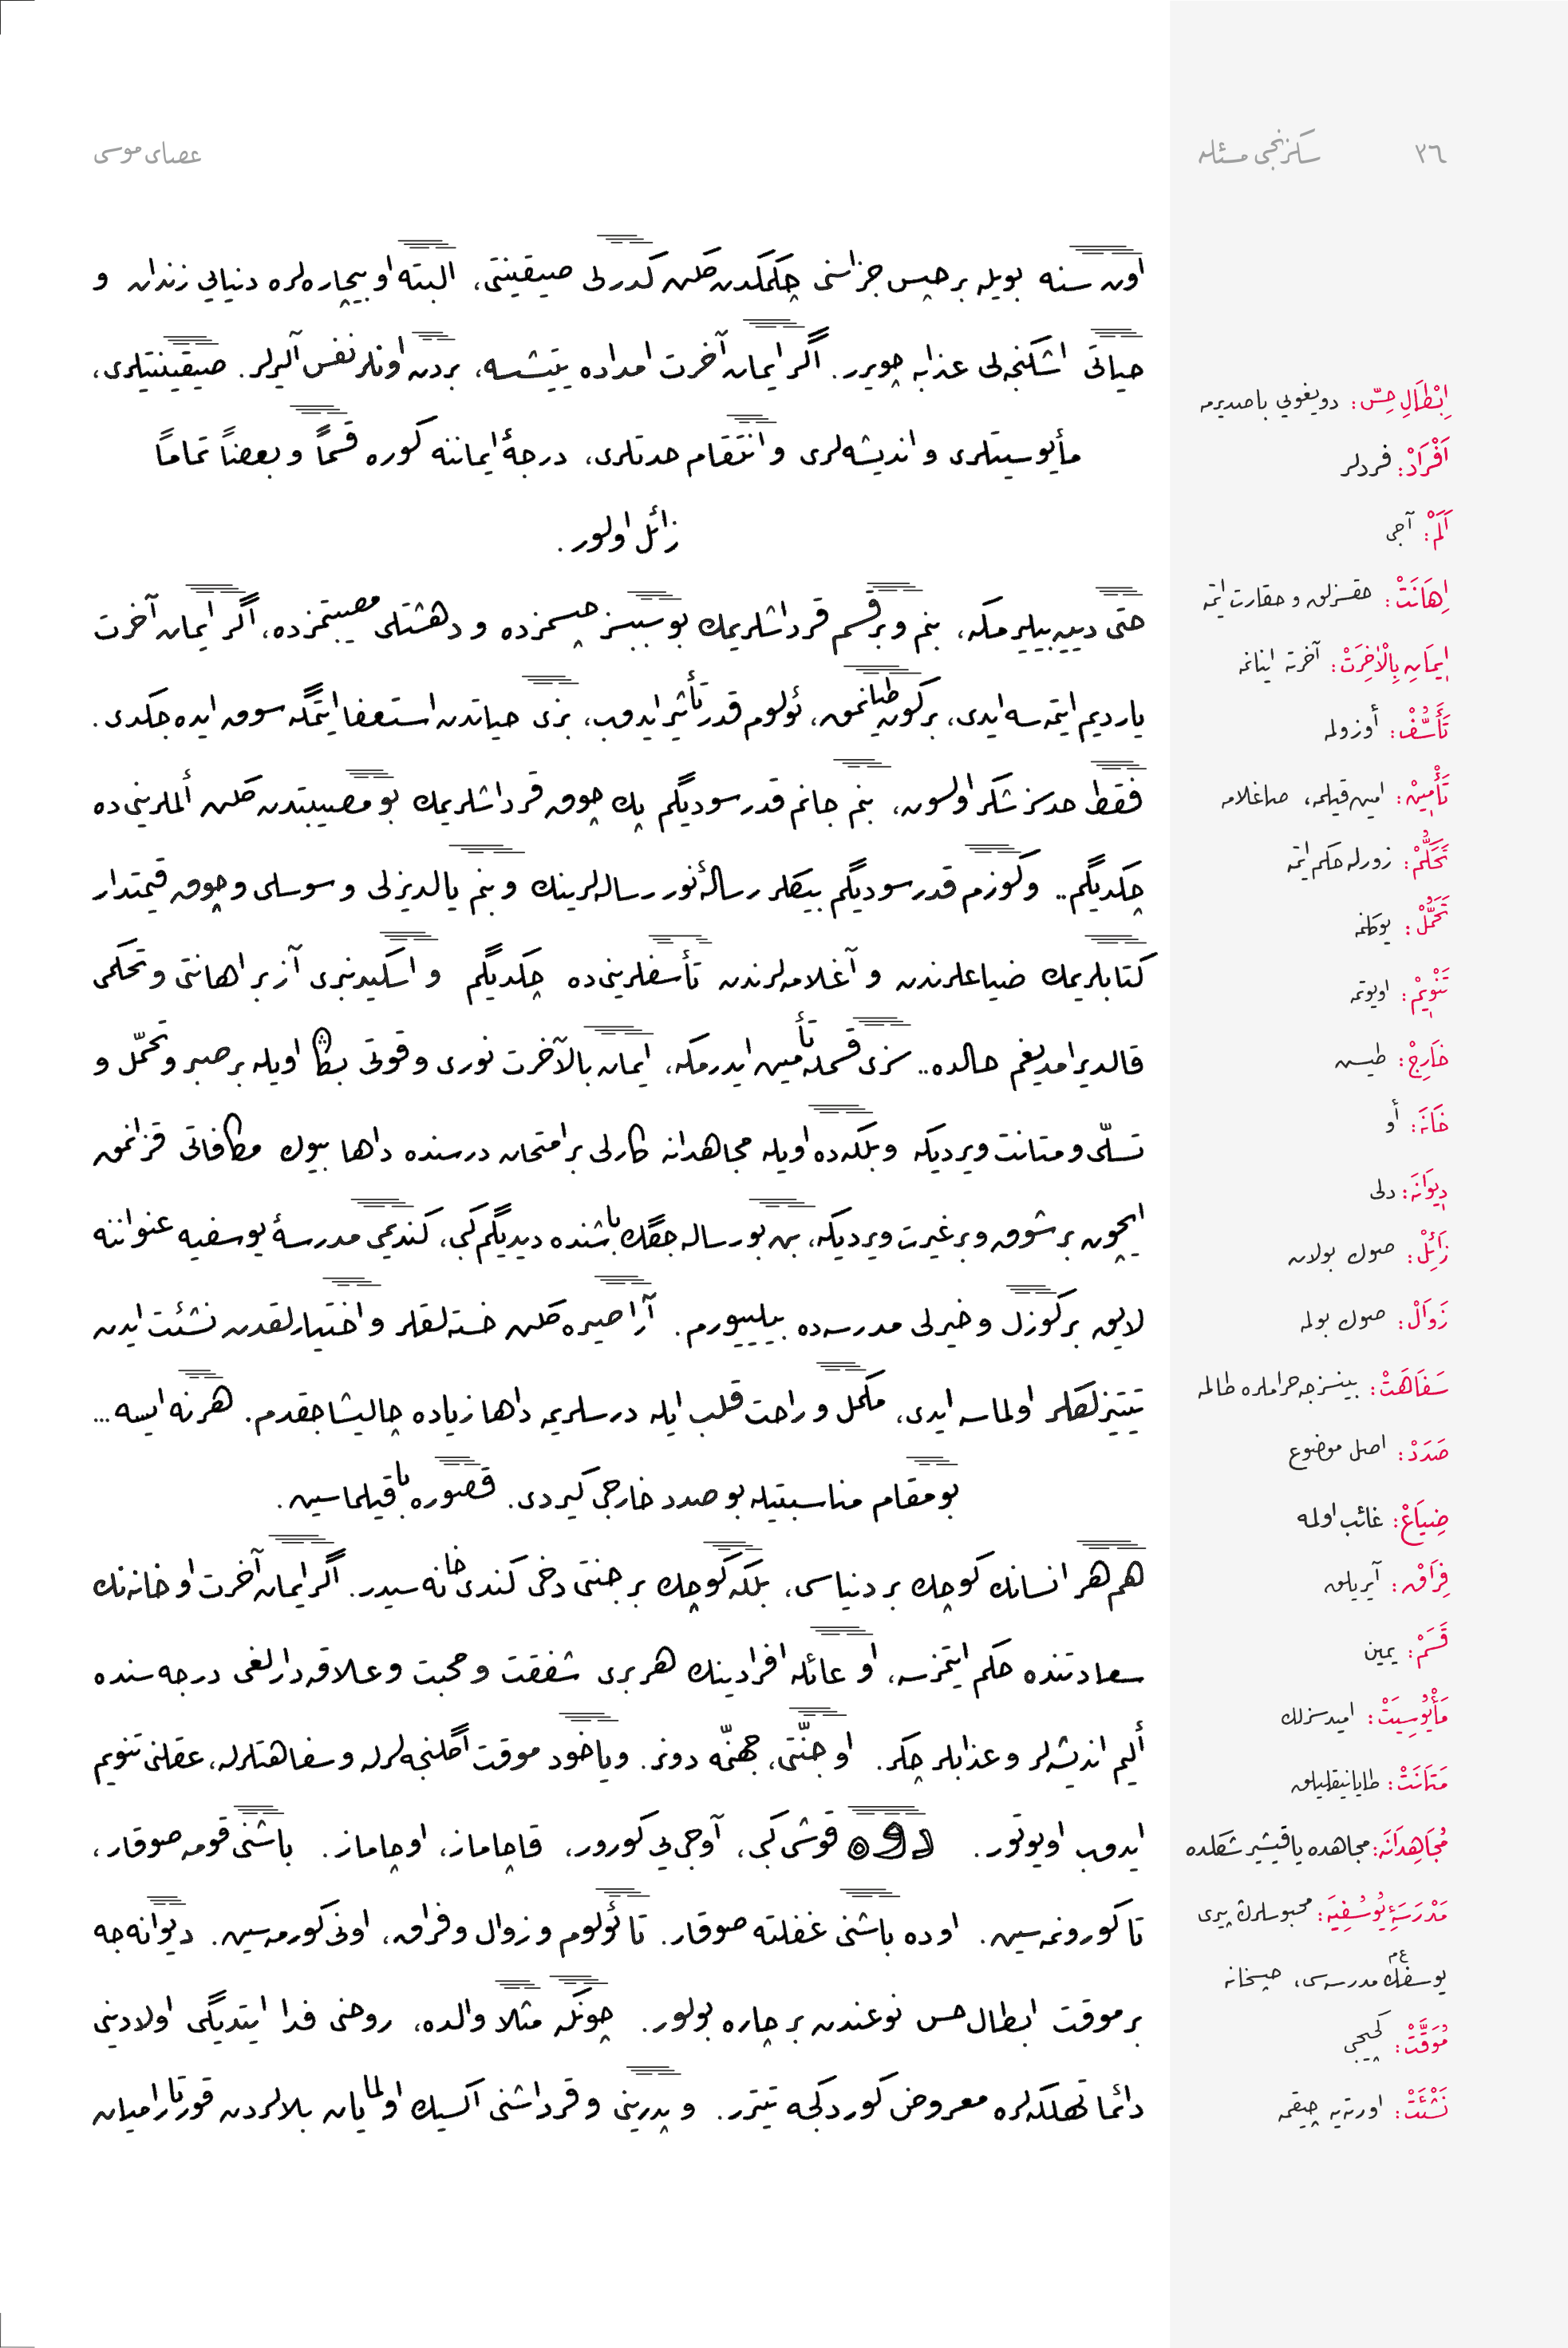 ٣٦
سكزنجی مسئله
عصای موسی
اون سنه بویله بر حپس جزاسنی چكمكدن كلن كدرلی صیقینتی، البته او بیچاره‌لره دنیایی زندان و
حیاتی اشكنجه‌لی عذابه چویرر. اگر ایمان آخرت امداده یتیشسه، بردن اونلر نفس آلیرلر. صیقینتیلری،
مأیوسیتلری و اندیشه‌لری و انتقام حدتلری، درجهٔ ایماننه كوره قسماً و بعضاً تماماً
زائل اولور.
حتی دییه‌بیلیرمكه، بنم و بر قسم قرداشلریمك بو سببسز حپسمزده و دهشتلی مصیبتمزده، اگر ایمان آخرت
یاردیم ایتمه‌سه ایدی، بر كون طیانمق، ئولوم قدر تأثیر ایدوب، بزی حیاتدن استعفا ایتمگه سوق ایده‌جكدی.
فقط حدسز شكر اولسون، بنم جانم قدر سودیگم پك چوق قرداشلریمك بو مصیبتدن كلن ألملرینی ده
چكدیگم.. و كوزم قدر سودیگم بیكلر رسالهٔ نور رساله‌لرینك و بنم یالدیزلی و سوسلی و چوق قیمتدار
كتابلریمك ضیاعلرندن و آغلامه‌لرندن تأسفلرینی ده چكدیگم و اسكیدنبری آز بر اهانتی و تحكمی
قالدیرامدیغم حالده.. سزی قسمله تأمین ایدرمكه، ایمان بالآخرت نوری و قوتی بكا اویله بر صبر و تحمّل و
تسلّی و متانت ویردیكه و بلكه ده اویله مجاهدانه كارلی بر امتحان درسنده داها بیوك مكافاتی قزانمق
ایچون بر شوق و بر غیرت ویردیكه، بن بو رساله‌جگك باشنده دیدیگم كبی، كندیمی مدرسهٔ یوسفیه عنواننه
لایق بر كوزل و خیرلی مدرسه‌ده بیلییورم. آرا صیره كلن خسته‌لقلر و اختیارلقدن نشئت ایدن
تیتیزلكلر اولماسه ایدی، مكمل و راحت قلب ایله درسلریمه داها زیاده چالیشاجقدم. هر نه ایسه...
بو مقام مناسبتیله بو صدد خارجی كیردی. قصوره باقیلماسین.
هم هر انسانك كوچك بر دنیاسی، بلكه كوچك بر جنتی دخی كندی خانه‌سیدر. اگر ایمان آخرت او خانه‌نك
سعادتنده حكم ایتمزسه، او عائله افرادینك هر بری شفقت و محبت و علاقه‌دارلغی درجه‌سنده
ألیم اندیشه‌لر و عذابلر چكر. او جنّتی، جهنّمه دونر. ویاخود موقت اگلنجه‌لرله و سفاهتلرله، عقلنی تنویم
ایدوب اویوتور. دوه قوشی كبی، آوجی‌یی كورور، قاچاماز، اوچاماز. باشنی قومه صوقار،
تا كورونمه‌سین. او ده باشنی غفلته صوقار. تا ئولوم و زوال و فراق، اونی كورمه‌سین. دیوانه‌جه
بر موقت ابطال حس نوعندن بر چاره بولور. چونكه مثلا والده، روحنی فدا ایتدیگی اولادینی
دائما تهلكه‌لره معروض كوردكجه تیترر. و پدرینی و قرداشنی اكسیك اولمایان بلالردن قورتارامیان
اِبْطَالِ حِسّ: دویغویی باصدیرمه
اَفْرَادْ: فردلر
اَلَمْ: آجی
اِهَانَتْ: حقسزلق و حقارت ایتمه
اِیمَانِ بِالْاٰخِرَتْ: آخرته اینانمه
تَأَسُّفْ: أوزولمه
تَأْمِینْ: امین قیلمه، صاغلامه
تَحَكُّمْ: زورله حكم ایتمه
تَحَمُّلْ: یوكلنمه
تَنْوِیمْ: اویوتمه
خَارِجْ: طیش
خَانَه: أو
دِیوَانَه: دلی
زَائِلْ: صوڭ بولان
زَوَالْ: صوڭ بولمه
سَفَاهَتْ: بیلینسزجه حراملره طالمه
صَدَدْ: اصل موضوع
ضِیَاعْ: غائب اولمه
فِرَاقْ: آیریلق
قَسَمْ: یمین
مَأْیُوسِیَتْ: امیدسزلك
مَتَانَتْ: طایانیقلیلق
مُجَاهِدَانَه: مجاهده یاقیشیر شكلده
مَدْرَسَهٔ یُوسُفِیَه: محبوسلرڭ پیری
یوسفڭ ع م مدرسه‌سی، حپسخانه
مُوَقَّتْ: كچیجی
نَشْئَتْ: اورته‌یه چیقمه